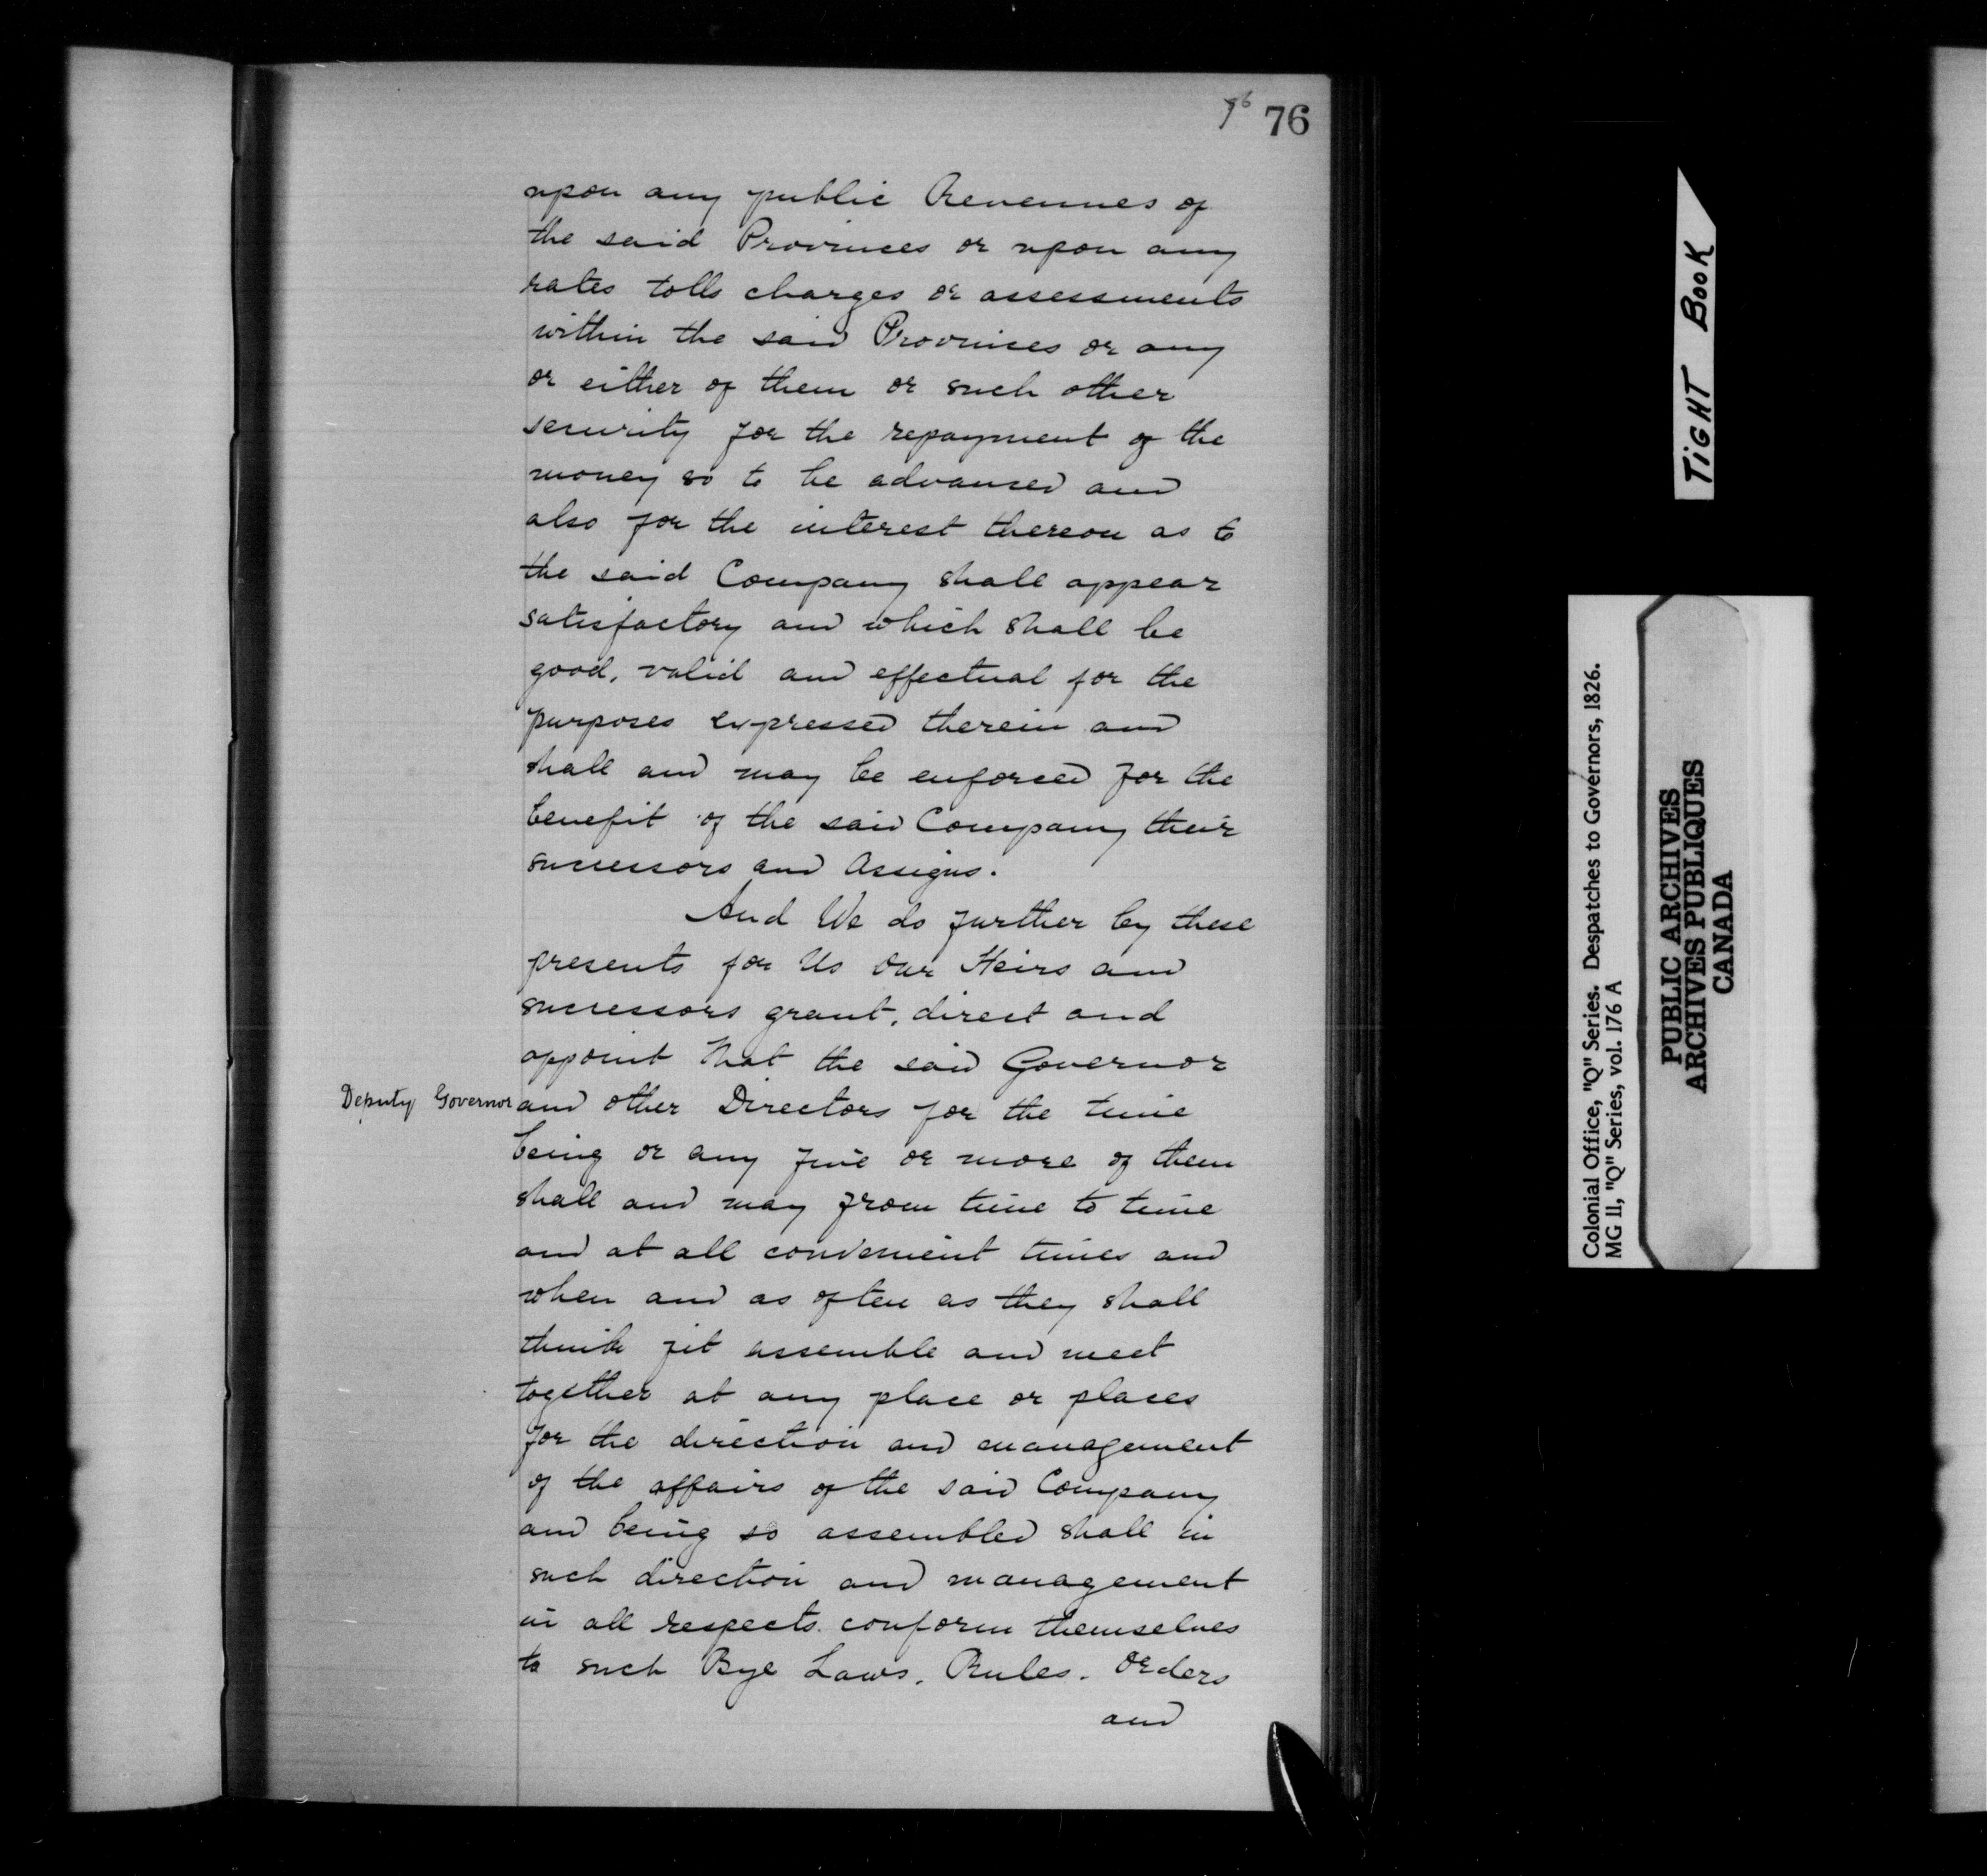 76 76
upon any public Revenues of
the said Provinces or upon any
rates tolls charges or assessments
within the said Provinces or any
or either of them or such other
security for the repayment of the
money so to be advanced and
also for the interest thereon as to
the said Company shall appear
satisfactory and which shall be
good, valid and effectual for the
purposes expressed therein and
shall and may be enforced for the
benefit of the said Company their
successors and Assigns.
And We do further by these
presents for Us Our Heirs and
successors grant, direct and
appoint that the said Governor
Deputy Governor and other Directors for the time
being or any five or more of them
shall and may from time to time
and at all convenient times and
when and as often as they shall
think fit assemble and meet
together at any place or places
for the direction and management
of the affairs of the said Company
and being so assembled shall in
such direction and management
in all respects conform themselves
to such Bye Laws, Rules, Orders
and
TIGHT BOOK
Colonial Office, "Q" Series. Despatches to Governors, 1826.
MG 11, "Q" Series, vol. 176 A
PUBLIC ARCHIVES
ARCHIVES PUBLIQUES
CANADA